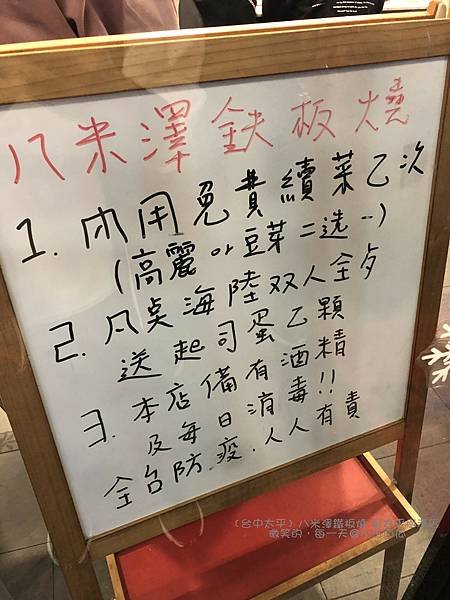 八米澤鉄板燒
1. 内用免費續菜乙次
(高麗 or 豆芽二选一)
2. 凡桌海陸双人全夕
送起司蛋乙顆
3. 本店備有酒精
及每日消毒!!
全台防疫.人人有責
(台中太平)八米澤鐵板燒
微笑的,每一天@